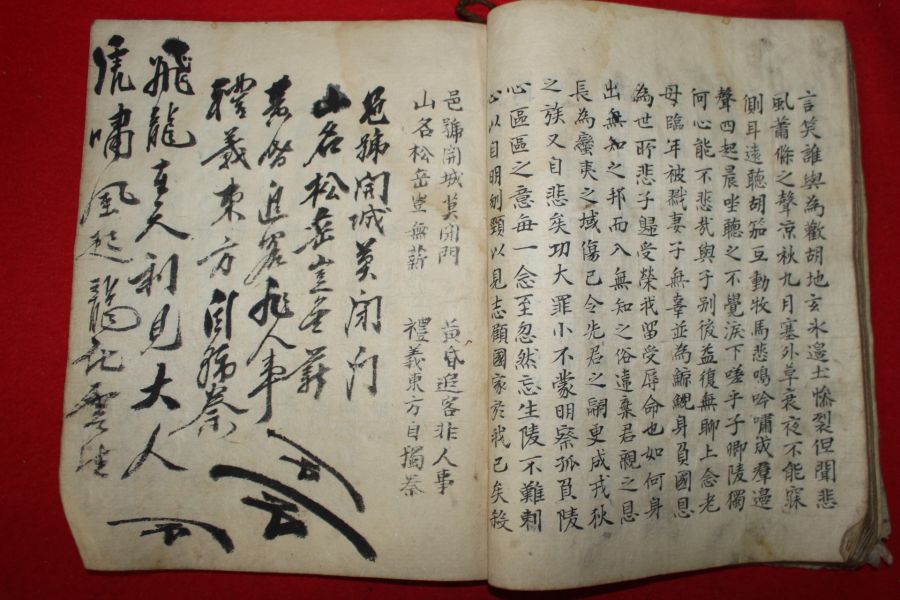 言笑誰與為歡胡地玄氷邊土慘裂但聞悲
風蕭條之聲涼秋九月塞外草衰夜不能寐
側耳遠聽胡笳互動牧馬悲鳴吟嘯成羣邊
聲四起晨坐聽之不覺淚下嗟乎子卿陵獨
何心能不悲哉與子別後益復無聊上念老
母臨年被戮妻子無辜並為鯨鯢身負國恩
為世所悲子歸受榮我留受辱命也如何身
出無知之邦而入無知之俗違棄君親之恩
長為蠻夷之域傷已令先君之嗣更成戎秋
之族又自悲矣功大罪小不蒙明察孤負陵
心區區之意每一念至忽然忘生陵不難刺
心以自明刎頸以見志顧國家於我已矣殺
邑號開城莫閉門 黃昏追客非人事
山名松岳豈無薪 禮義東方自獨秦
邑號開城莫閉門
山名松岳豈無薪
黃昏追客非人事
禮義東方自獨秦
云云
飛龍在天利見大人
虎嘯風起龍起雲生